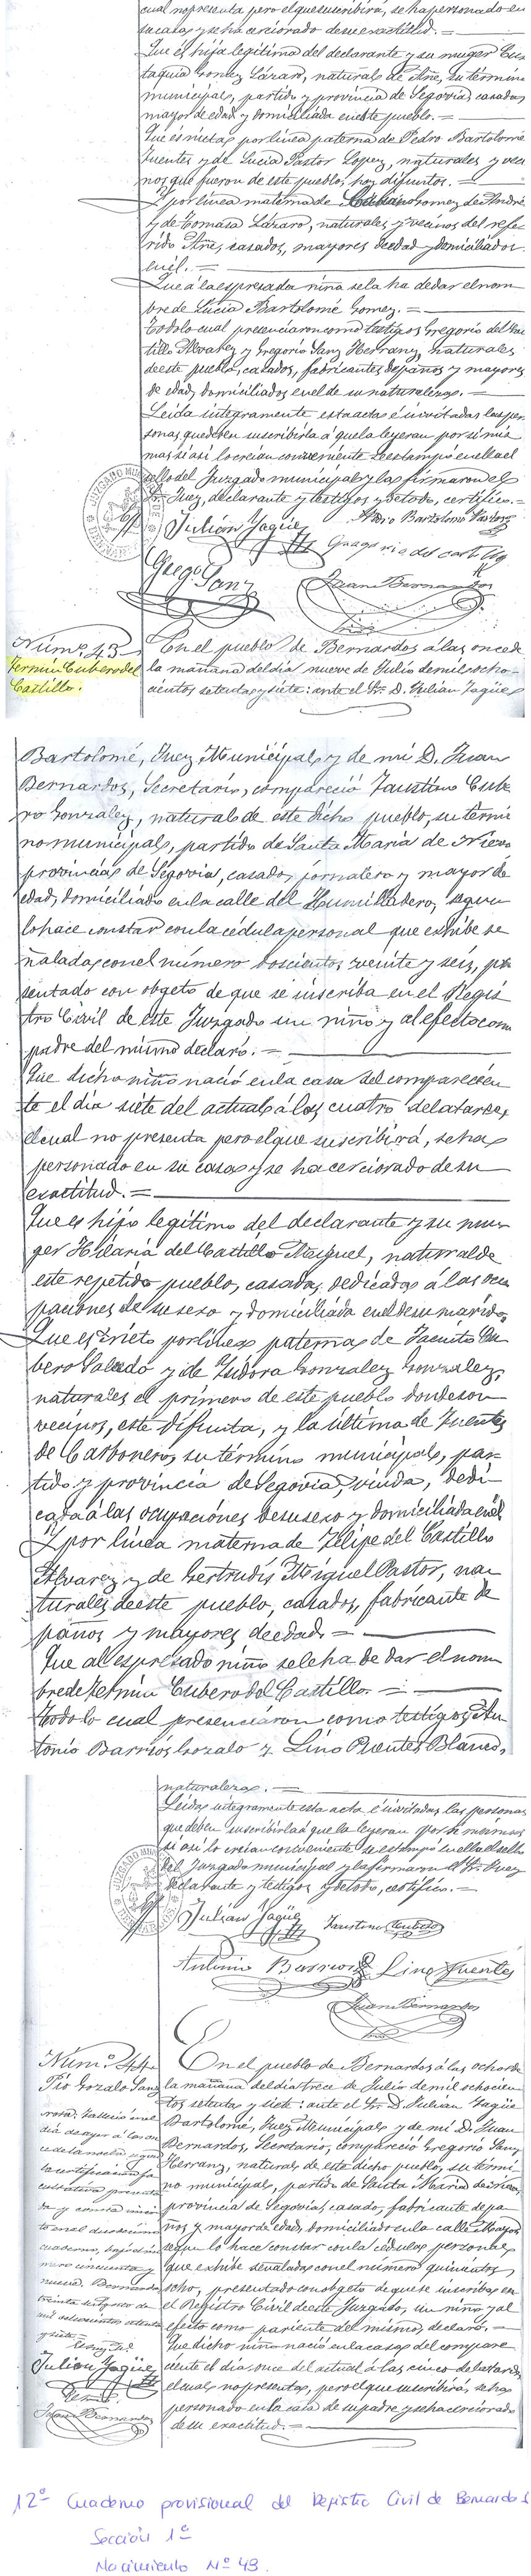 cual no presenta pero el que suscribirá, se ha personado en
su casa y se ha cerciorado de su exactitud. =
Que és hija legítima del declarante y su muger Eus
taquia Gomez Lázaro, natural de Añe, su término
municipal, partido y provincia de Segovia, casada,
mayor de edad y domiciliada en este pueblo. =
Que és nieta por línea paterna de Pedro Bartolomé
Fuentes y de Lucía Pastor Lopez, naturales y veci
nos que fueron de este pueblo, hoy difuntos. =
Y por línea materna de Gomez de André
y de Tomasa Lázaro, naturales y vecinos del refe
rido Añe, casados, mayores de edad y domiciliados
en él. =
Que á la espresada niña se la ha de dar el nom
bre de Lucía Bartolomé Gomez. =
Todo lo cual presenciaron como testigos Gregorio del Cas
tillo Alvarez y Gregorio Sanz Herranz, naturales
de este pueblo, casados, fabricantes de paños y mayores
de edad, domiciliados en el de su naturaleza. =
Leida íntegramente esta acta é invitadas las per
sonas que deben suscribirla á que la leyeran por sí mis
mas si así lo creian conveniente se estampó en ella el
sello del Juzgado municipal y la firmaron el
Sr. Juez, declarante y testigos y de todo, certifico. =
Julián Yagüe
Bartolomé Pastor
Gregorio del Castillo
Grego Sanz
Juan Bernardos
Núm.º 43
Fermín Cubero del
Castillo.
En el pueblo de Bernardos á las once de
la mañana del dia nueve de Julio de mil ocho-
cientos setenta y siete: ante el Sr. D. Julian Yagüe
Bartolomé, Juez Municipal y de mi D. Juan
Bernardos, Secretario, compareció Faustino Cube
ro Gonzalez, natural de este dicho pueblo, su térmi
no municipal, partido de Santa María de Nieva
provincia de Segovia, casado, jornalero y mayor de
edad, domiciliado en la calle del Humilladero, segun
lo hace constar con la cédula personal que exhibe se
ñalada con el número doscientos veinte y seis, pre
sentado con obgeto de que se inscriba en el Regis
tro Civil de este Juzgado un niño y al efecto como
padre del mismo declaró. =
Que dicho niño nació en la casa del comparecien
te el día siete del actual á las cuatro de la tarde,
el cual no presenta pero el que suscribirá, se ha
personado en su casa y se ha cerciorado de su
exactitud. =
Que es hijo legítimo del declarante y su mu
ger Hilaria del Castillo Miguel, natural de
este repetido pueblo, casada, dedicada á las ocu
paciones de su sexo y domiciliada en el de su marido
Que es nieto por línea paterna de Jacinto Cu
bero Salcedo y de Isidora Gonzalez Gonzalez,
naturales el primero de este pueblo donde son
vecinos, este difunto, y la última de Fuentes
de Carbonero, su término municipal, par-
tido y provincia de Segovia, viuda, dedi
cada á las ocupaciones de su sexo y domiciliada en él
Y por línea materna de Felipe del Castillo
Alvarez y de Gertrudis Miguel Pastor, na
turales de este pueblo, casados, fabricante de
paños y mayores de edad. =
Que al espresado niño se le ha de dar el nom
bre de Fermin Cubero del Castillo. =
Todo lo cual presenciaron como testigos An
tonio Barrios Gozalo y Lino Puentes Blanco,
naturaleza. =
Leida íntegramente esta acta é invitadas las personas
que deben suscribirla á que la leyeran por sí mismas
si así lo creian conveniente se estampó en ella el sello
del Juzgado municipal y la firmaron el Sr. Juez
declarante y testigos y de todo, certifico. =
Julián Yagüe
Faustino Cubero
Antonio Barrios
Lino Fuentes
Juan Bernardos
Núm.º 44
Pio Gozalo Sanz
En el pueblo de Bernardos á las ocho de
la mañana del dia trece de Julio de mil ochocien
tos setenta y siete: ante el Sr. D. Julian Yagüe
Bartolomé, Juez Municipal y de mi D. Juan
Bernardos, Secretario, compareció Gregorio Sanz
Herranz, natural de este dicho pueblo, su térmi
no municipal, partido de Santa María de Nieva,
provincia de Segovia, casado, fabricante de pa
ños y mayor de edad, domiciliado en la calle Mayor
segun lo hace constar con la cédula personal
que exhibe señalada con el número quinientos
ocho, presentado con obgeto de que se inscriba en
el Registro Civil de este Juzgado, un niño y al
efecto como pariente del mismo, declaró. =
Que dicho niño nació en la casa del compare
ciente el dia once del actual á las cinco de la tarde
el cual no presenta, pero el que suscribirá, se ha
personado en la casa de su padre y se ha cerciorado
de su exactitud. =
Nota: Falleció en el
dia de ayer á las on
ce de la noche segun
la certificacion fa
cultativa presenta
da
cuaderno, bajo el nú
mero cincuenta y
nueve. Bernardos
treinta Agosto de
mil ochocientos setenta
y siete
Julián Yagüe
Juan Bernardos
12º Cuaderno provisional del Registro Civil de Bernardos
Sección 1ª
Nacimiento Nº 43.